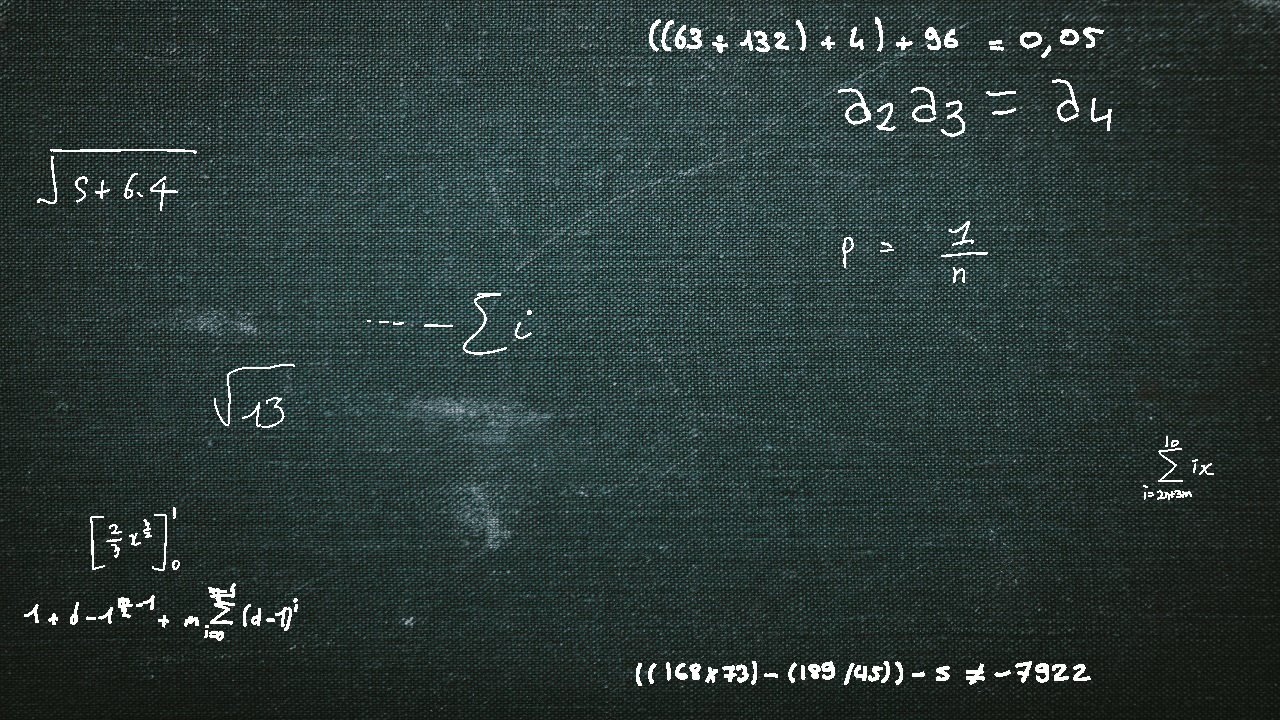 ((63 ÷ 132) + 4) + 96 = 0,05
∂2 ∂3 = ∂4
√(S + 6.4)
p = 1/n
... - ∑ i
√13
∑_{i=2n+3m}^{10} ix
[2/3 x^{3/2}]_0^1
1 + d - 1^{m/2 - 1} + m ∑_{i=0} (d-1)^i
((168 x 73) - (189 / 45)) - s ≠ -7922